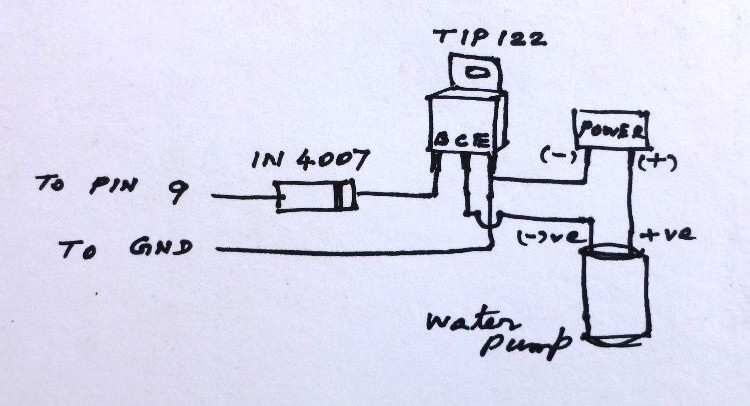 TIP 122
B C E
POWER
(-)
(+)
IN 4007
TO PIN 9
TO GND
(-)ve
+ve
Water
Pump